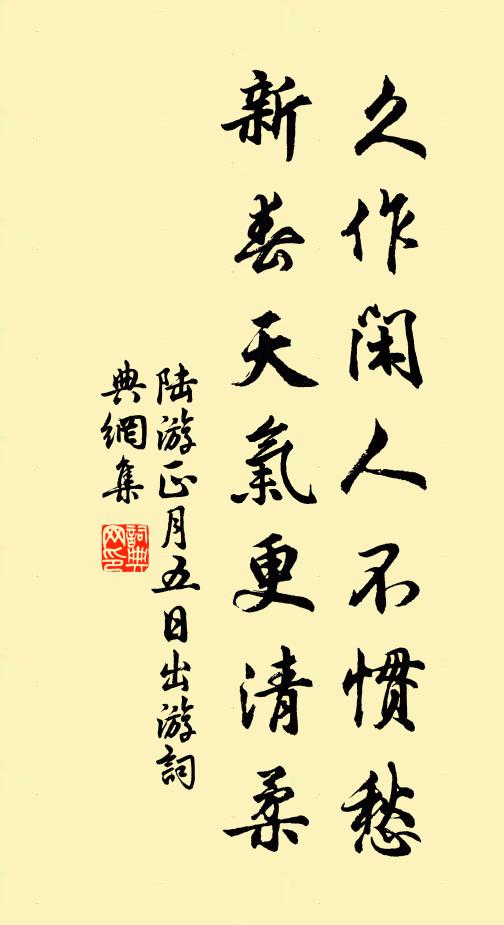 久作閑人不慣愁
新春天氣更清柔
陆游正月五日出游詞
典網集
詞典
网印